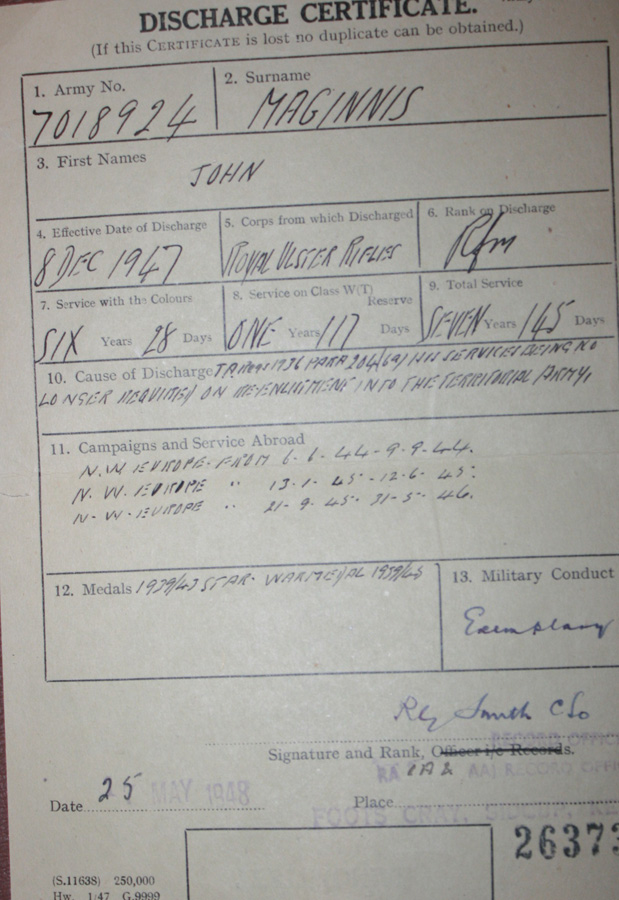 DISCHARGE CERTIFICATE.
(If this CERTIFICATE is lost no duplicate can be obtained.)
1. Army No.
7018924
2. Surname
MAGINNIS
3. First Names
JOHN
4. Effective Date of Discharge
8 DEC 1947
5. Corps from which Discharged
ROYAL ULSTER RIFLES
6. Rank on Discharge
Rfm
7. Service with the Colours
SIX Years 28 Days
8. Service on Class W(T) Reserve
ONE Years 117 Days
9. Total Service
SEVEN Years 145 Days
10. Cause of Discharge TA Regs 1936 PARA 204(6a) HIS SERVICES BEING NO
LONGER REQUIRED ON RE-ENLISTMENT INTO THE TERRITORIAL ARMY.
11. Campaigns and Service Abroad
N.W. EUROPE. FROM 6-6-44-9-9-44.
N. W. EUROPE " 13-1-45-12-6-45.
N-W-EUROPE " 21-9-45-31-5-46.
12. Medals 1939/45 STAR. WAR MEDAL 1939/45
13. Military Conduct
Exemplary
Smith
Signature and Rank, Officer i/c Records.
RA AA RECORD OFFICE
Date 25 MAY 1948
Place
FOOTS CRAY, SIDCUP, KE
26373
(S.11638) 250,000
Hw. 1/47 G.9999